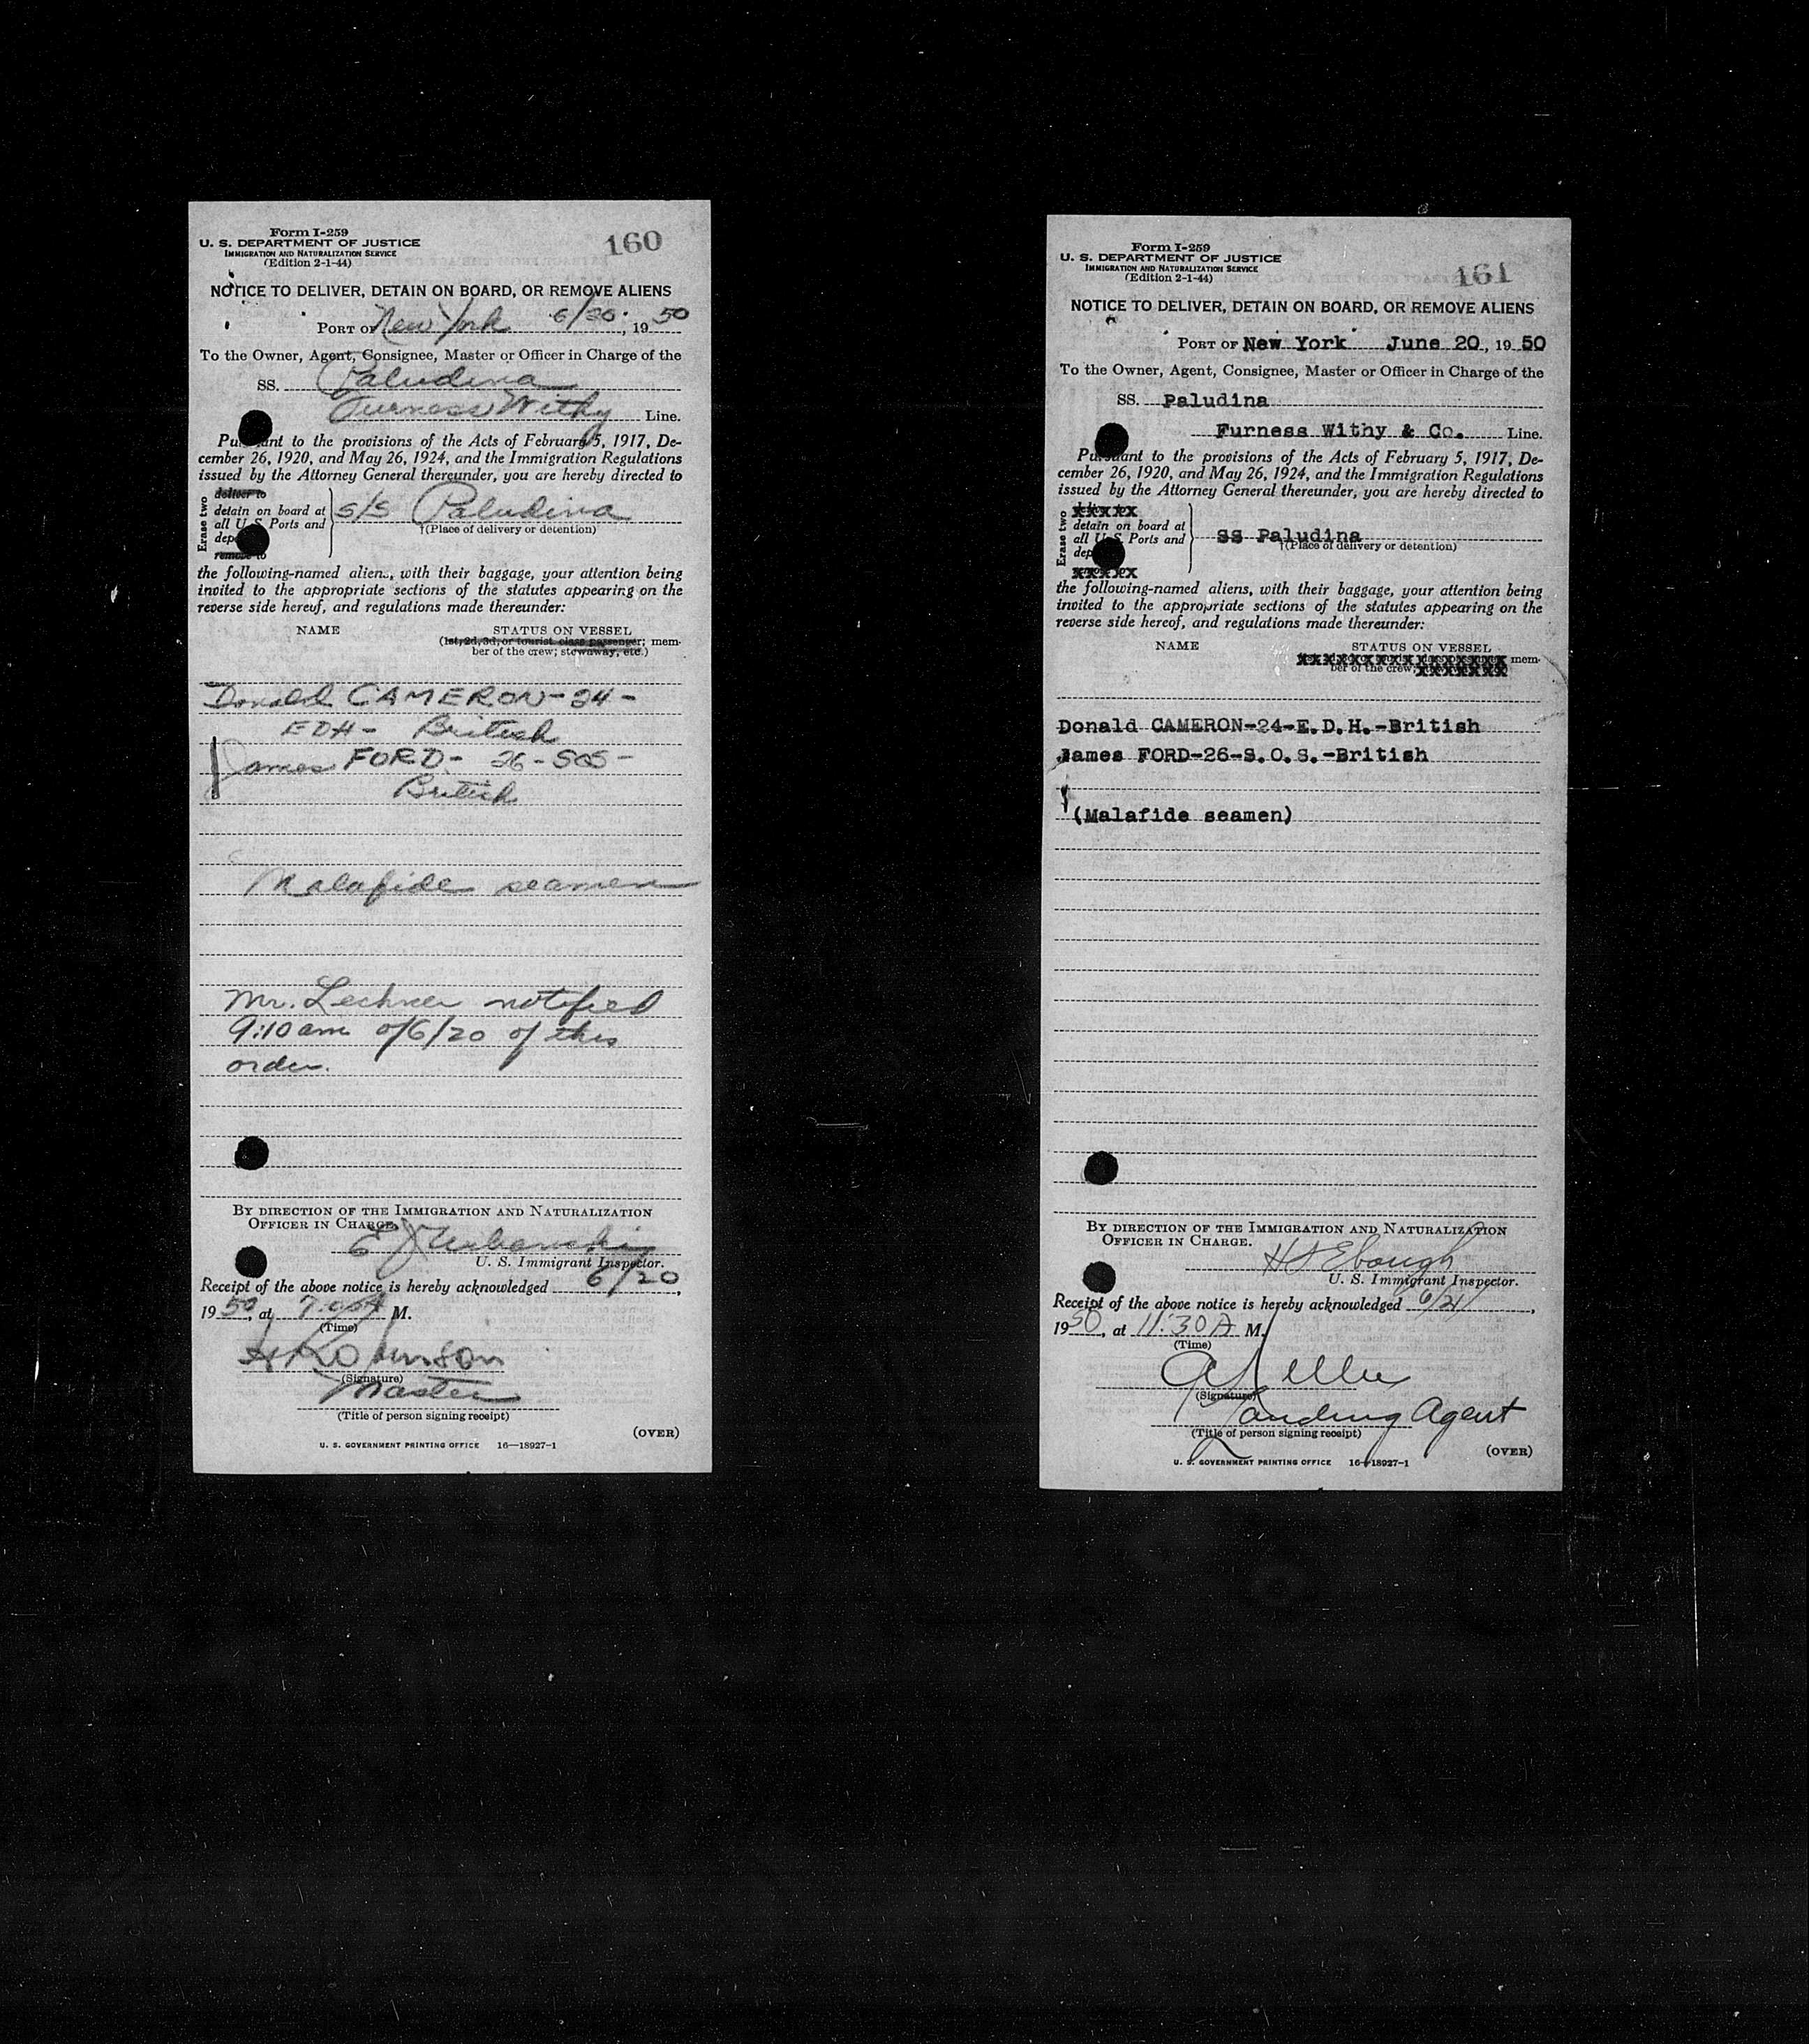 Form I-259
U. S. DEPARTMENT OF JUSTICE
IMMIGRATION AND NATURALIZATION SERVICE
(Edition 2-1-44)
160
NOTICE TO DELIVER, DETAIN ON BOARD, OR REMOVE ALIENS
PORT OF New York 6/20, 19 50
To the Owner, Agent, Consignee, Master or Officer in Charge of the
SS. Paludina
Furness Withy Line.
Pursuant to the provisions of the Acts of February 5, 1917, De-
cember 26, 1920, and May 26, 1924, and the Immigration Regulations
issued by the Attorney General thereunder, you are hereby directed to
Erase two
deliver to
detain on board at
all U. S. Ports and
dep
remove to
s/s Paludina
†(Place of delivery or detention)
the following-named aliens, with their baggage, your attention being
invited to the appropriate sections of the statutes appearing on the
reverse side hereof, and regulations made thereunder:
NAME STATUS ON VESSEL
(1st, 2d, 3d, or tourist class passenger; mem-
ber of the crew; stowaway, etc.)
Donald CAMERON-24-
EDH- British
James FORD- 26-SOS-
British
Malafide seamen
Mr. Lechner notified
9:10 am of 6/20 of this
order.
BY DIRECTION OF THE IMMIGRATION AND NATURALIZATION
OFFICER IN CHARGE.
E J Urbanski
U. S. Immigrant Inspector.
Receipt of the above notice is hereby acknowledged 6/20,
19 50, at M.
(Time)
H Robinson
(Signature)
Master
(Title of person signing receipt)
(OVER)
U. S. GOVERNMENT PRINTING OFFICE 16—18927-1
Form I-259
U. S. DEPARTMENT OF JUSTICE
IMMIGRATION AND NATURALIZATION SERVICE
(Edition 2-1-44)
161
NOTICE TO DELIVER, DETAIN ON BOARD, OR REMOVE ALIENS
PORT OF New York June 20, 19 50
To the Owner, Agent, Consignee, Master or Officer in Charge of the
SS. Paludina
Furness Withy & Co. Line.
Pursuant to the provisions of the Acts of February 5, 1917, De-
cember 26, 1920, and May 26, 1924, and the Immigration Regulations
issued by the Attorney General thereunder, you are hereby directed to
Erase two
xxxxx
detain on board at
all U. S. Ports and
dep
xxxxx
SS Paludina
†(Place of delivery or detention)
the following-named aliens, with their baggage, your attention being
invited to the appropriate sections of the statutes appearing on the
reverse side hereof, and regulations made thereunder:
NAME STATUS ON VESSEL
mem-
ber of the crew;
Donald CAMERON-24-E.D.H.-British
James FORD-26-S.O.S.-British
(Malafide seamen)
BY DIRECTION OF THE IMMIGRATION AND NATURALIZATION
OFFICER IN CHARGE.
H S Ebough
U. S. Immigrant Inspector.
Receipt of the above notice is hereby acknowledged 6/21,
19 50, at 11:30 A M.
(Time)
(Signature)
Landing Agent
(Title of person signing receipt)
(OVER)
U. S. GOVERNMENT PRINTING OFFICE 16—18927-1